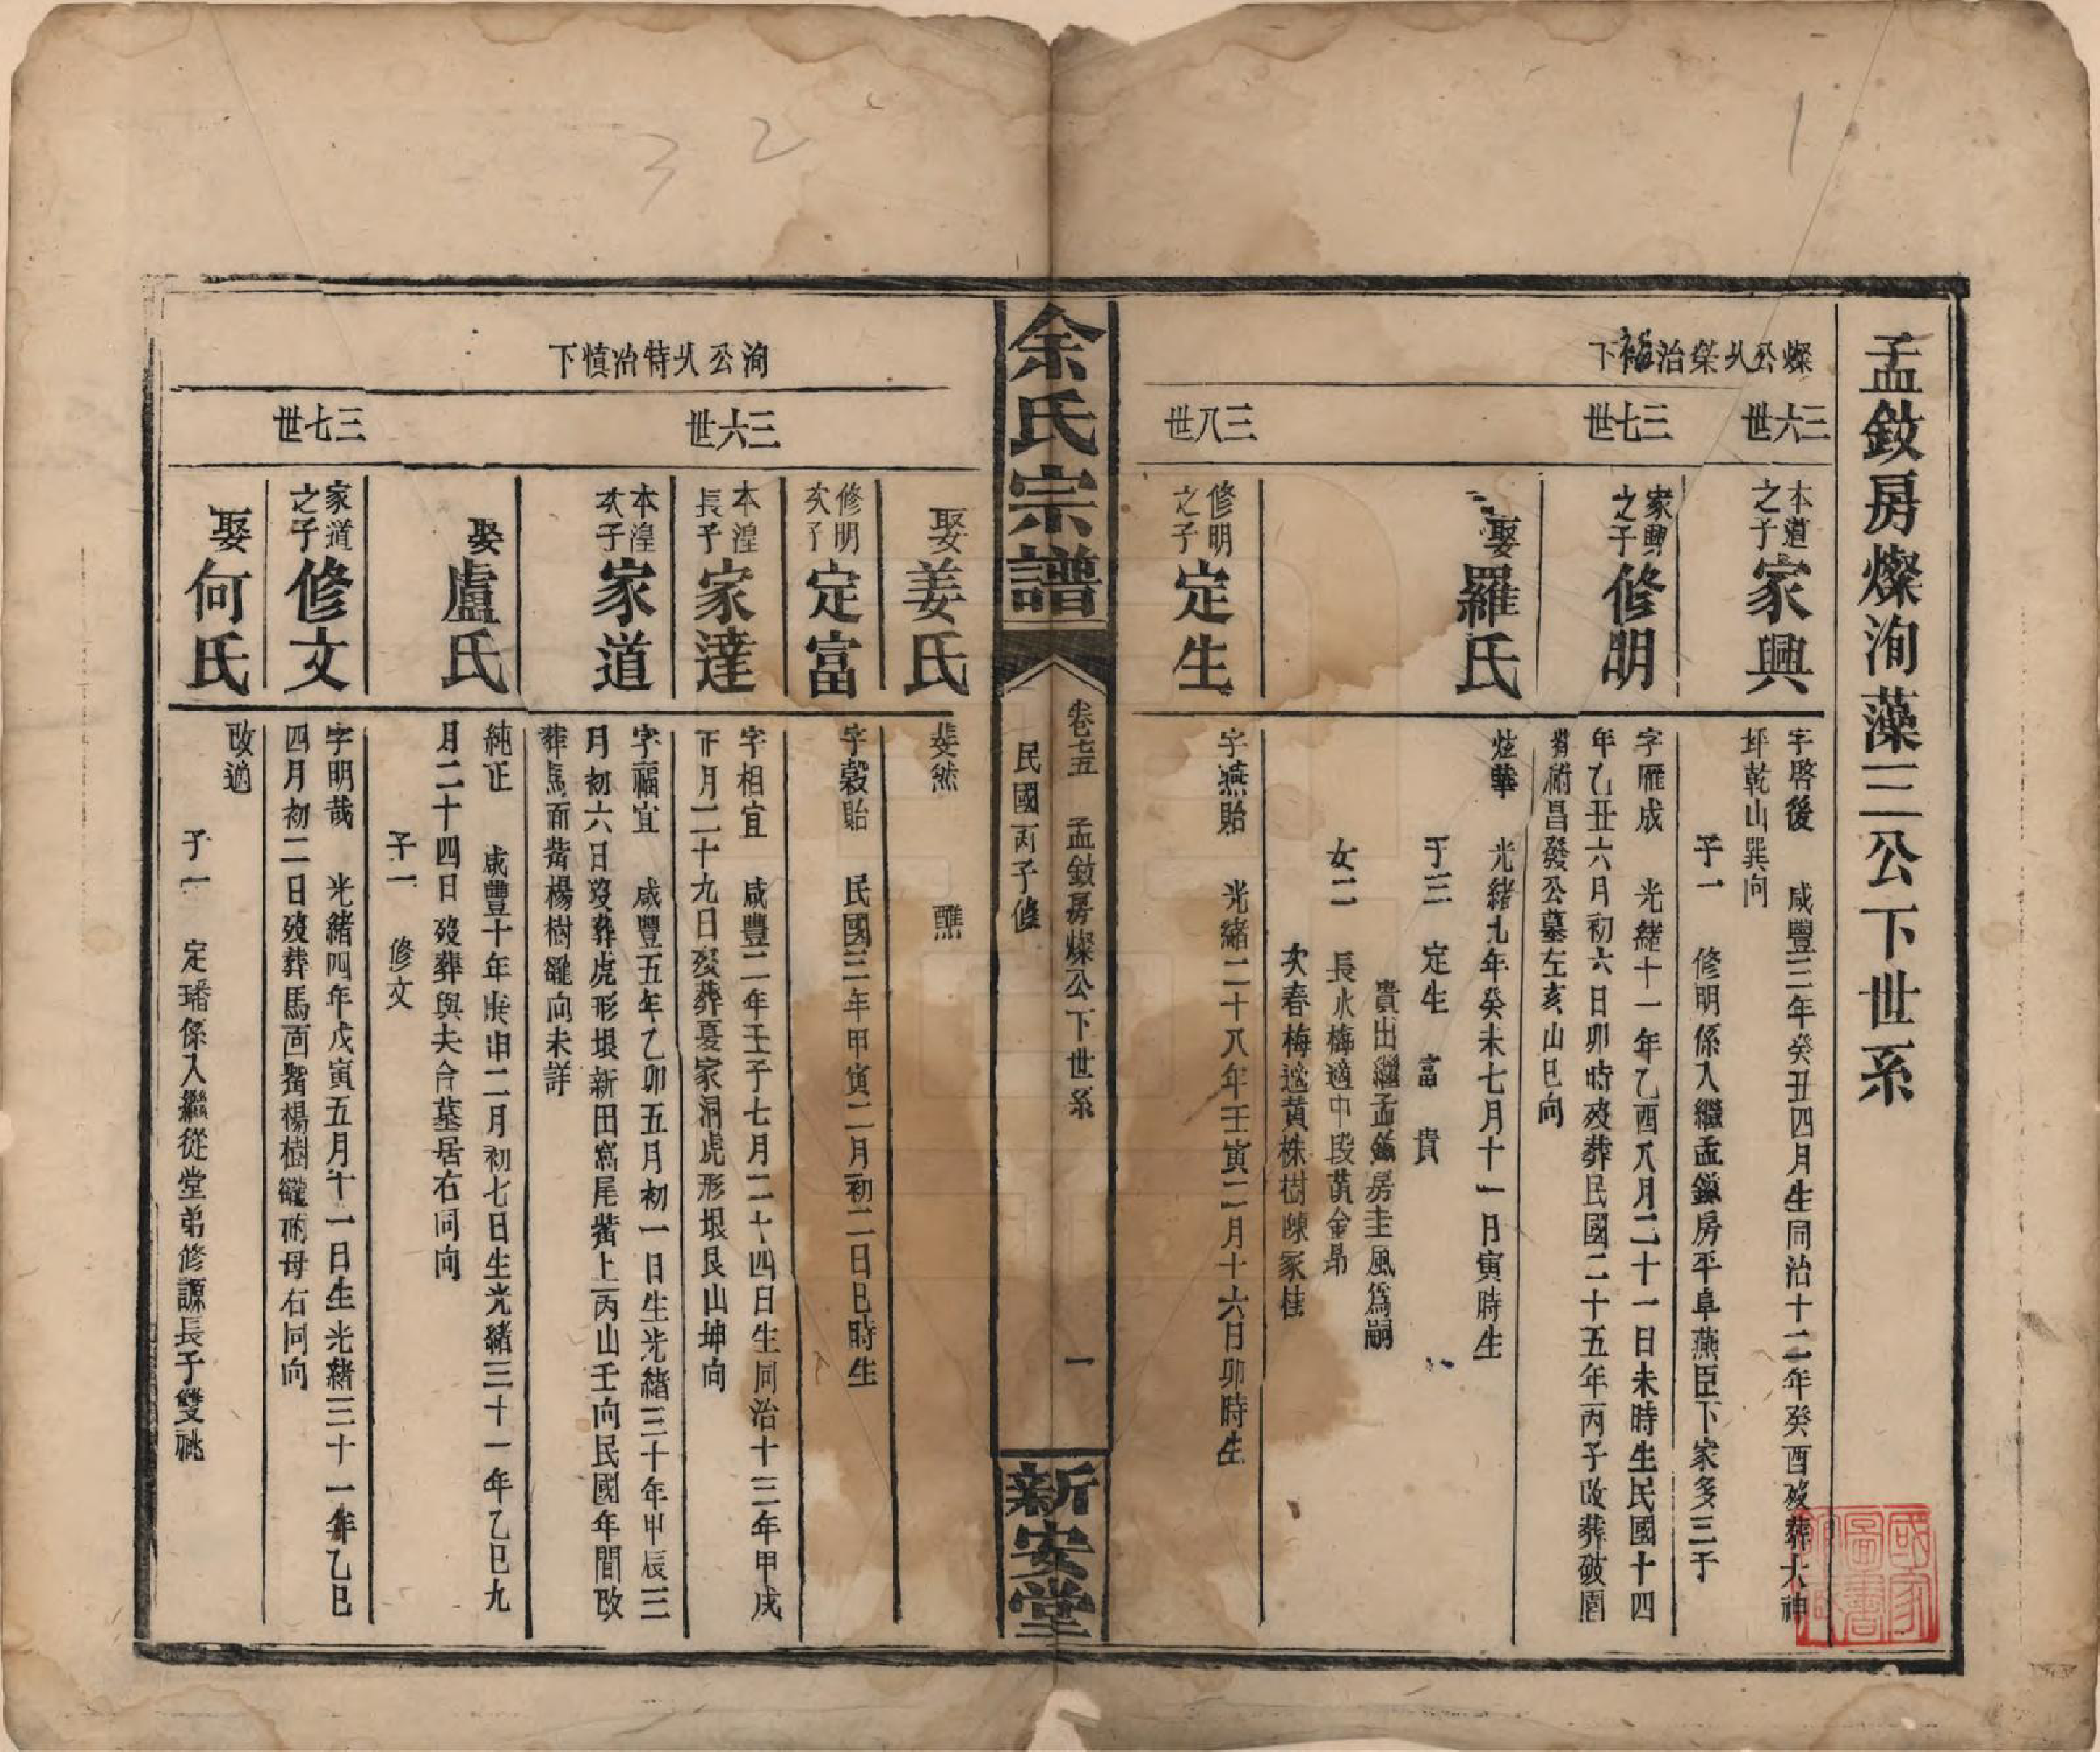 孟鈘房燦洵藻三公下世系
燦公乆榮治裕下
三六世
本道之子家興
字啓後　咸豐三年癸丑四月生同治十二年癸酉歿葬大神
坪乾山巽向
子一　修明係入繼孟鎰房平阜燕臣下家多三子
三七世
家興之子修明
字雁成　光緒十一年乙酉八月二十一日未時生民國十四
年乙丑六月初六日卯時歿葬民國二十五年丙子改葬破園
昌發公墓左亥山巳向
娶羅氏
炫華　光緒九年癸未七月十一日寅時生
子三　定生　富　貴
貴出繼孟鎰房圭風為嗣
女二　長水梅適中段黃金昴
次春梅適黃株樹陳家桂
三八世
修明之子定生
字燕貽　光緒二十八年壬寅二月十六日卯時生
余氏宗譜
卷十五　孟鈘房燦公下世系　一
民國丙子修
新安堂
洵公乆特治慎下
娶姜氏
斐然　醮
修明次子定富
字穀貽　民國三年甲寅二月初二日巳時生
三六世
本湟長子家達
字相宜　咸豐二年壬子七月二十四日生同治十三年甲戌
正月二十九日歿葬夏家洞虎形垠艮山坤向
本湟次子家道
字福宜　咸豐五年乙卯五月初一日生光緒三十年甲辰三
月初六日歿葬虎形垠新田窩尾嘴上丙山壬向民國年間改
葬馬面嘴楊樹壠向未詳
娶盧氏
純正　咸豐十年庚申二月初七日生光緒三十一年乙巳九
月二十四日歿葬與夫合墓居右同向
子一　修文
三七世
家道之子修文
字明哉　光緒四年戊寅五月十一日生光緒三十一年乙巳
四月初二日歿葬馬面嘴楊樹壠祔母右同向
娶何氏
改適
子一　定璠係入繼從堂弟修謜長子雙祧